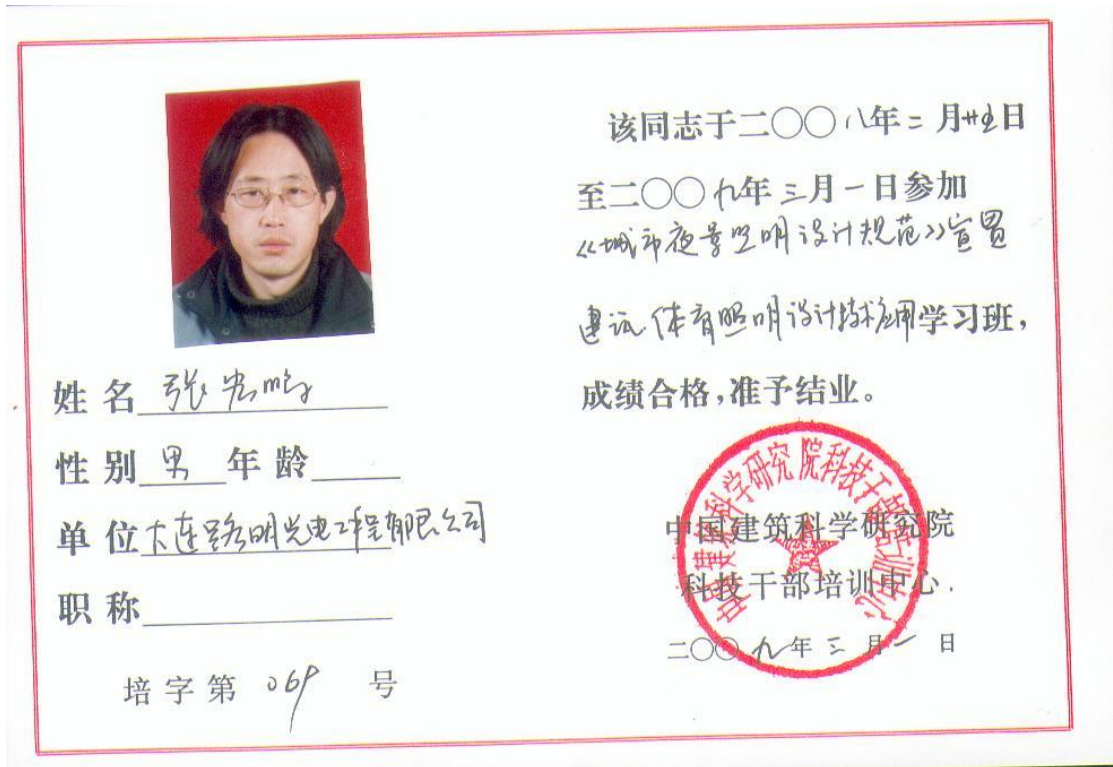 姓 名 张宏鹏
性 别 男 年 龄
单 位 大连路明光电工程有限公司
职 称
培 字 第 069 号
该同志于二〇〇八年二月廿五日
至二〇〇九年三月一日参加
《城市夜景照明设计规范》宣贯
暨 体育照明设计技术应用学习班，
成绩合格，准予结业。
中国建筑科学研究院
科技干部培训中心.
二〇〇九年三月一日
中国建筑科学研究院科技干部培训中心